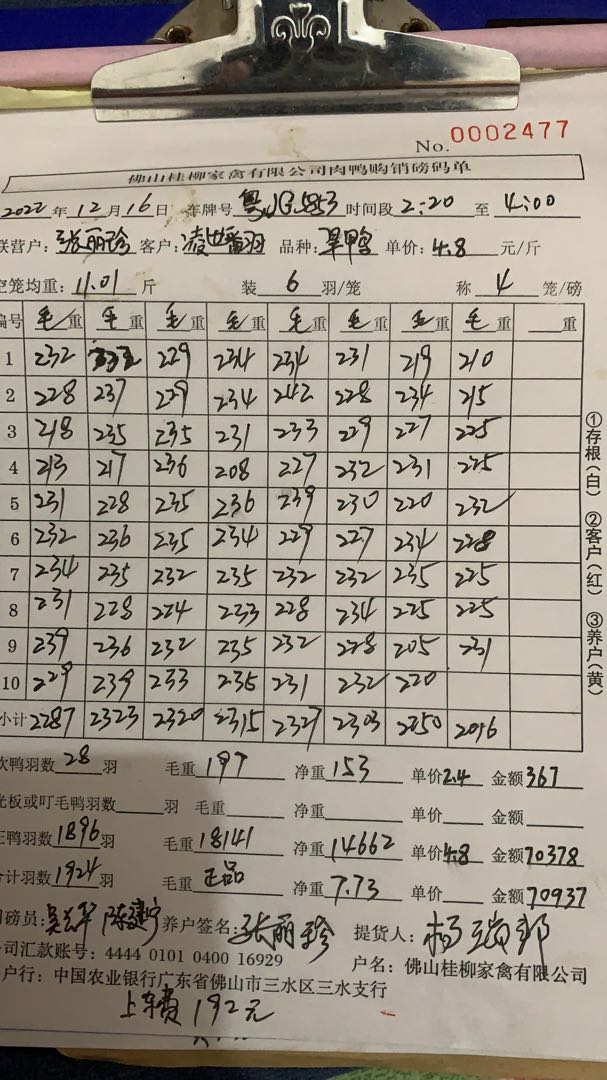 No. 0002477
佛山桂柳家禽有限公司肉鸭购销磅码单
2022 年 12 月 16 日 车牌号 时间段 2:20 至 4:00
联营户: 张丽珍 客户: 凌世 羽 品种: 旱鸭 单价: 4.8 元/斤
空笼均重: 11.01 斤 装 6 羽/笼 称 4 笼/磅
编号 毛重 毛重 毛重 毛重 毛重 毛重 毛重 毛重 重
1 232 229 234 234 231 219 210
2 228 237 229 234 242 228 234 215
3 218 235 235 231 233 229 227 225
4 213 217 236 208 227 232 231 225
5 231 228 235 236 239 230 220 232
6 232 236 235 234 229 227 234 228
7 234 235 232 235 232 232 235 225
8 231 228 224 233 228 234 225 225
9 239 236 232 235 232 228 205 231
10 229 239 233 235 231 232 220
小计 2287 2323 2320 2315 2327 2303 2250 2016
次鸭羽数 28 羽 毛重 197 净重 153 单价 2.4 金额 367
光板或叮毛鸭羽数 羽 毛重 净重 单价 金额
正鸭羽数 1896 羽 毛重 18141 净重 14662 单价 4.8 金额 70378
合计羽数 1924 羽 毛重 正品 净重 7.73 单价 金额 70937
司磅员: 陈建宁 养户签名: 张丽珍 提货人: 杨
公司汇款账号: 4444 0101 0400 16929 户名: 佛山桂柳家禽有限公司
开户行: 中国农业银行广东省佛山市三水区三水支行
上车费 192元
①存根(白) ②客户(红) ③养户(黄)